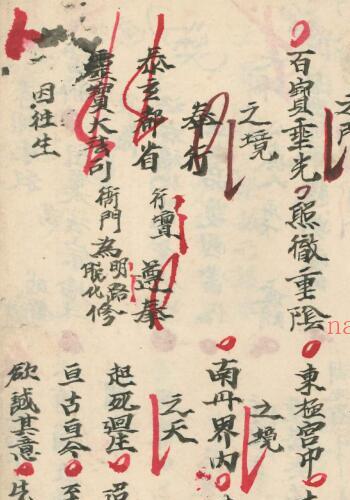 之門
百寳垂光照徹重陰
之境
奉行
泰玄都省行壇遵奉
靈寶大法司衙門為明路脫化修
因往生
東極宮中
之境
南丹界内
之天
起死迴生
亘古亘今至
欲誠其意先
na